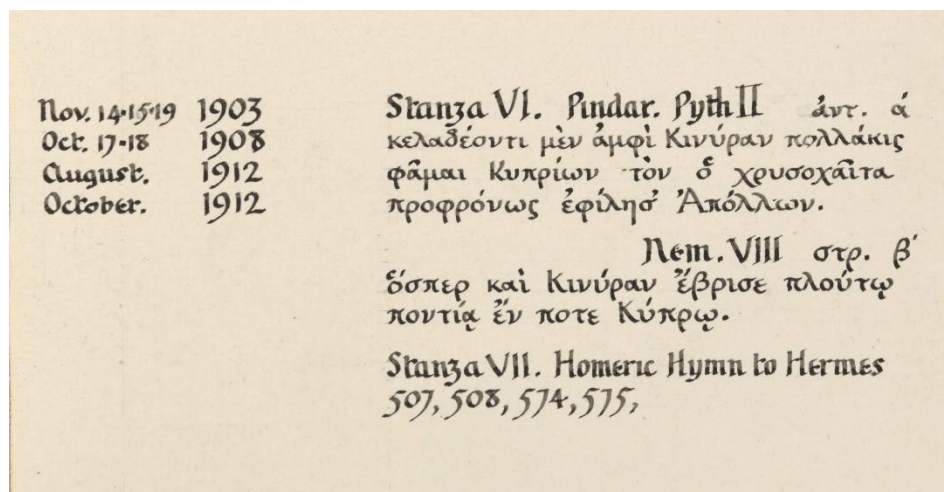 Nov. 14·15·19 1903
Oct. 17-18 1908
August. 1912
October. 1912
Stanza VI. Pindar. Pyth II ἀντ. ά
κελαδέοντι μὲν ἀμφὶ Κινύραν πολλάκις
φᾶμαι Κυπρίων τὸν ὁ̓ χρυσοχαῖτα
προφρόνως ἐφίλησ̓ Ἀπόλλων.
Nem. VIII στρ. β́
ὅσπερ καὶ Κινύραν ἔβρισε πλούτῳ
ποντίᾳ ἔν ποτε Κύπρῳ.
Stanza VII. Homeric Hymn to Hermes
507, 508, 574, 575,